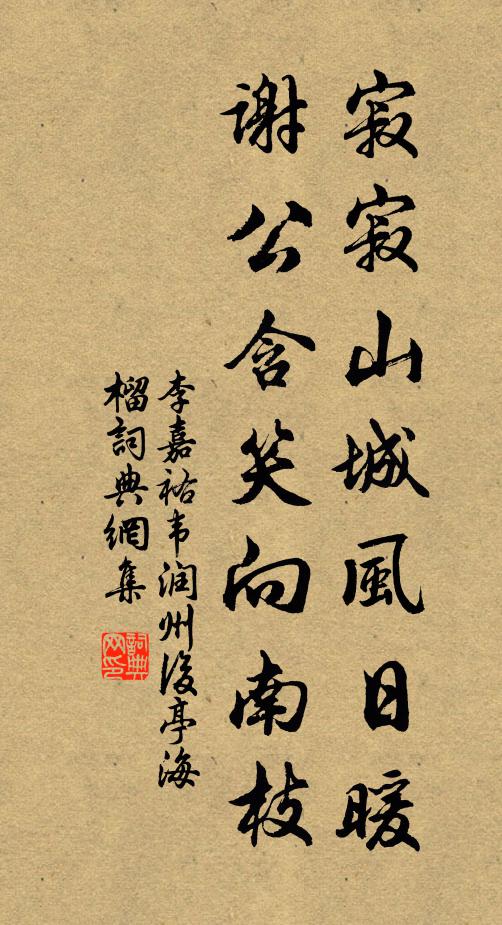 寂寂山城風日暖
謝公含笑向南枝
李嘉祐韦润州後亭海
榴詞典網集
詞典
网印